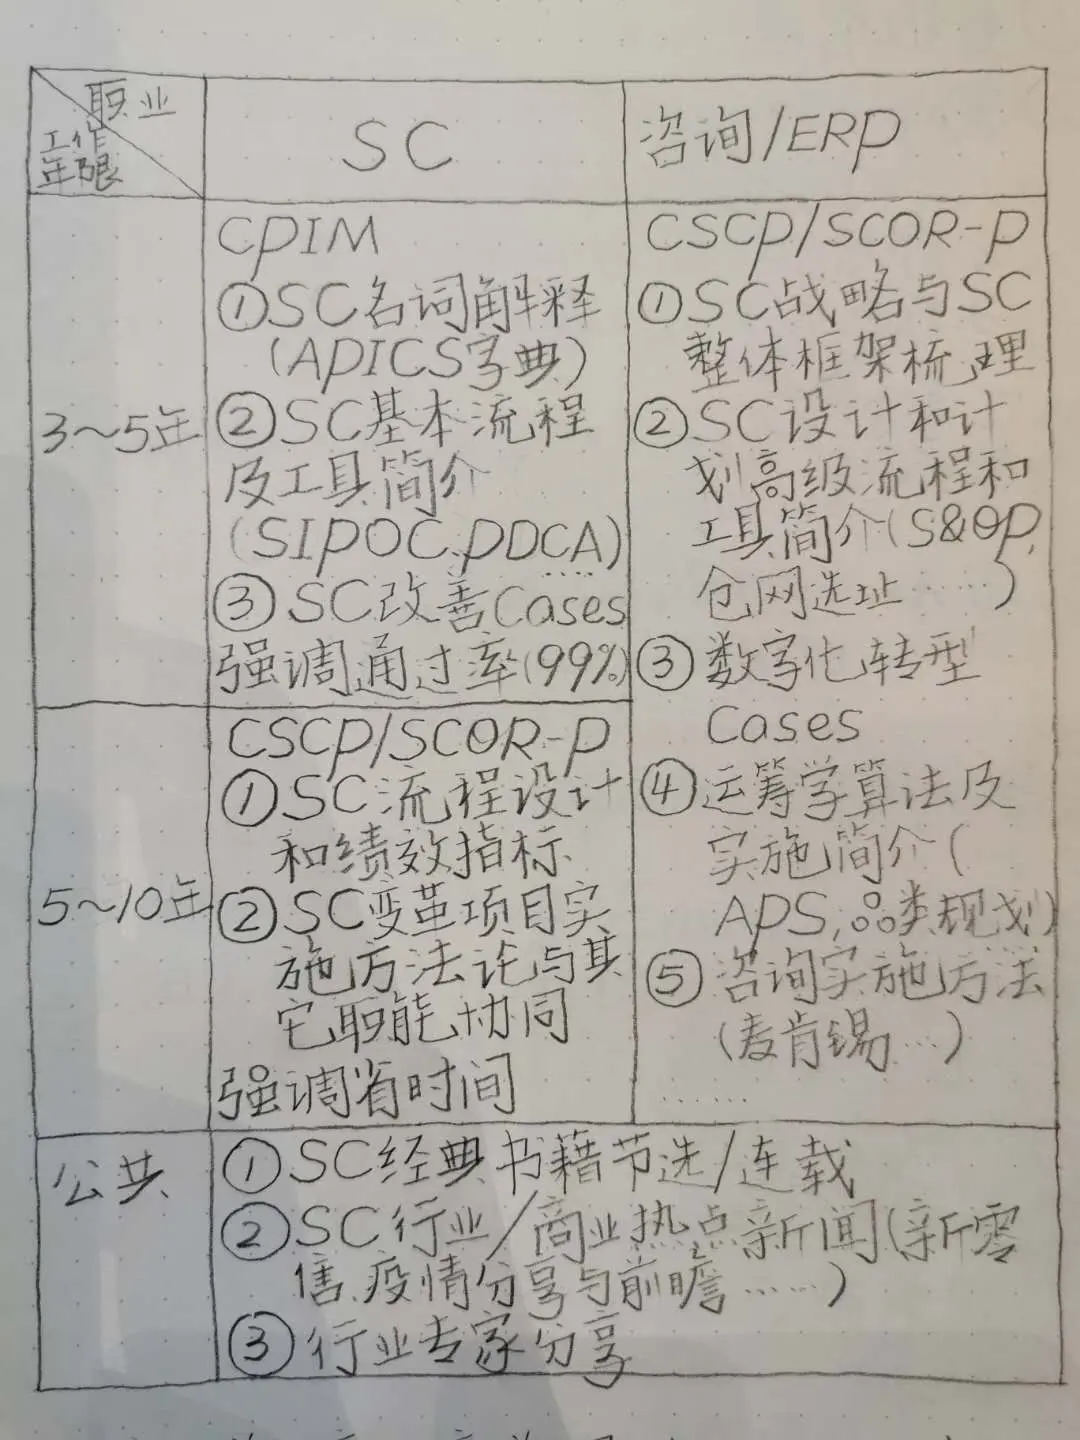 职业
工作
年限
SC
咨询/ERP
3~5年
CPIM
①SC名词解释
(APICS字典)
②SC基本流程
及工具简介
(SIPOC,PDCA)
....
③SC改善Cases
强调通过率(99%)
CSCP/SCOR-P
①SC战略与SC
整体框架梳理
②SC设计和计
划高级流程和
工具简介(S&OP,
仓网选址……)
③数字化转型
Cases
④运筹学算法及
实施简介(
APS,品类规划)
⑤咨询实施方法
(麦肯锡...)
......
5~10年
CSCP/SCOR-P
①SC流程设计
和绩效指标
②SC变革项目实
施方法论与其
它职能协同
强调省时间
公共
①SC经典书籍节选/连载
②SC行业/商业热点新闻(新零
信,疫情分享与前瞻……)
③行业专家分享